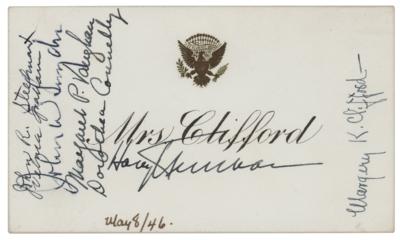 John R. Steelman
John W. Snyder
Margaret P. Vaughan
Dorothea Connelly
Mrs. Clifford
Harry Truman
May 8/46.
Margery K. Clifford